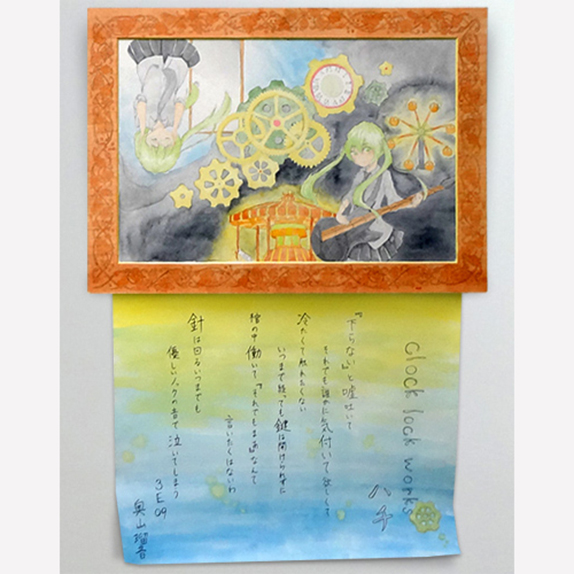 Clock lock works
ハチ
『下らない』と嘘吐いて
それでも誰かに気付いて欲しくて
冷たくて触れたくない
いつまで経っても鍵は開けられずに
棺の中働いて『それでもまだ』なんて
言いたくはないわ
針は回るいつまでも
優しいノックの音で泣いてしまう
3E09
奥山瑠音